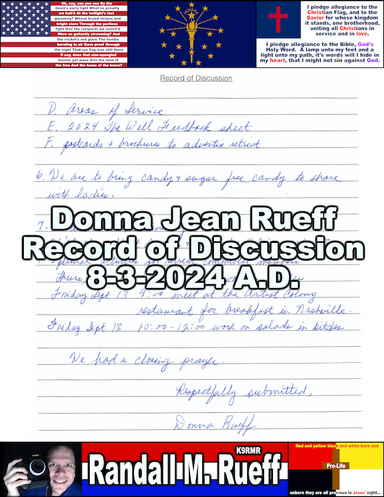 Oh, say, can you see By the
dawn's early light What so proudly
we hail'd At the twilight's last
gleaming? Whose broad stripes and
bright stars Through the perilous
fight O'er the ramparts we watch'd
Were so gallantly streaming? And
the rocket's red glare The bombs
bursting in air Gave proof through
the night That our flag was still there
banner yet wave O'er the land of
the free And the home of the brave?
I pledge allegiance to the
Christian Flag, and to the
Savior for whose kingdom
it stands, one brotherhood,
uniting all Christians in
service and in love.
I pledge allegiance to the Bible, God's
Holy Word. A lamp unto my feet and a
light unto my path, it's words will I hide in
my heart, that I might not sin against God.
Record of Discussion
D. Areas of Service
E. 2024 The Well Feedback sheet
F. postcards & brochures to advertise retreat
6. We are to bring candy & sugar free candy to share
with ladies.
7.
Donna Jean Rueff
Record of Discussion
8-3-2024 A.D.
Friday Sept 13 9:00 meet at the Artist Colony
restaurant for breakfast in Nashville.
Friday Sept 13 10:00-12:00 work on salads in kitchen
We had a closing prayer.
Respectfully submitted,
Donna Rueff
K9RMR
Randall M. Rueff
Red and yellow black and white born and
Pro-Life
unborn they are all precious in Jesus' sight...